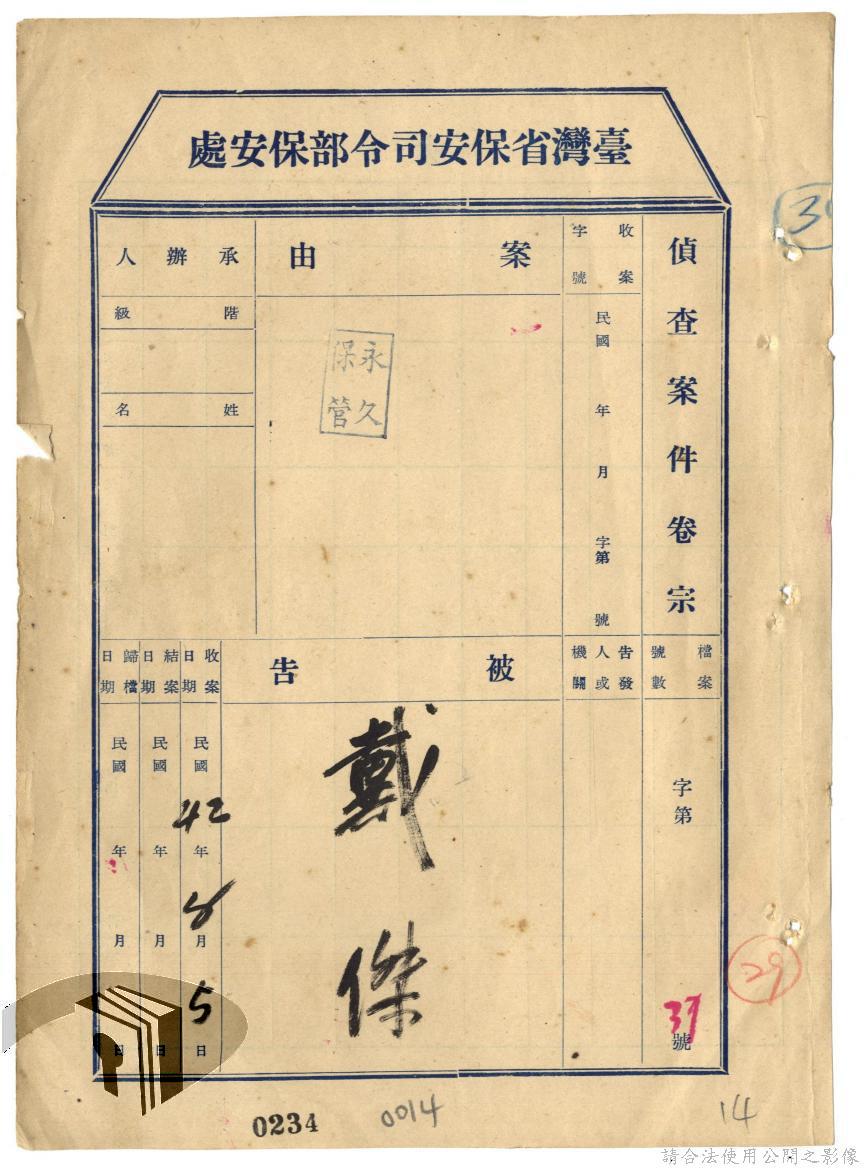 臺灣省保安司令部保安處
偵查案件卷宗
檔案號數
字第
37
號
收案字號
民國 年 月 字第 號
告發人或機關
案由
永久保管
被告
戴傑
承辦人
階級
姓名
收案日期
民國42年8月5日
結案日期
民國 年 月 日
歸檔日期
民國 年 月 日
29
0234
0014
14
請合法使用公開之影像